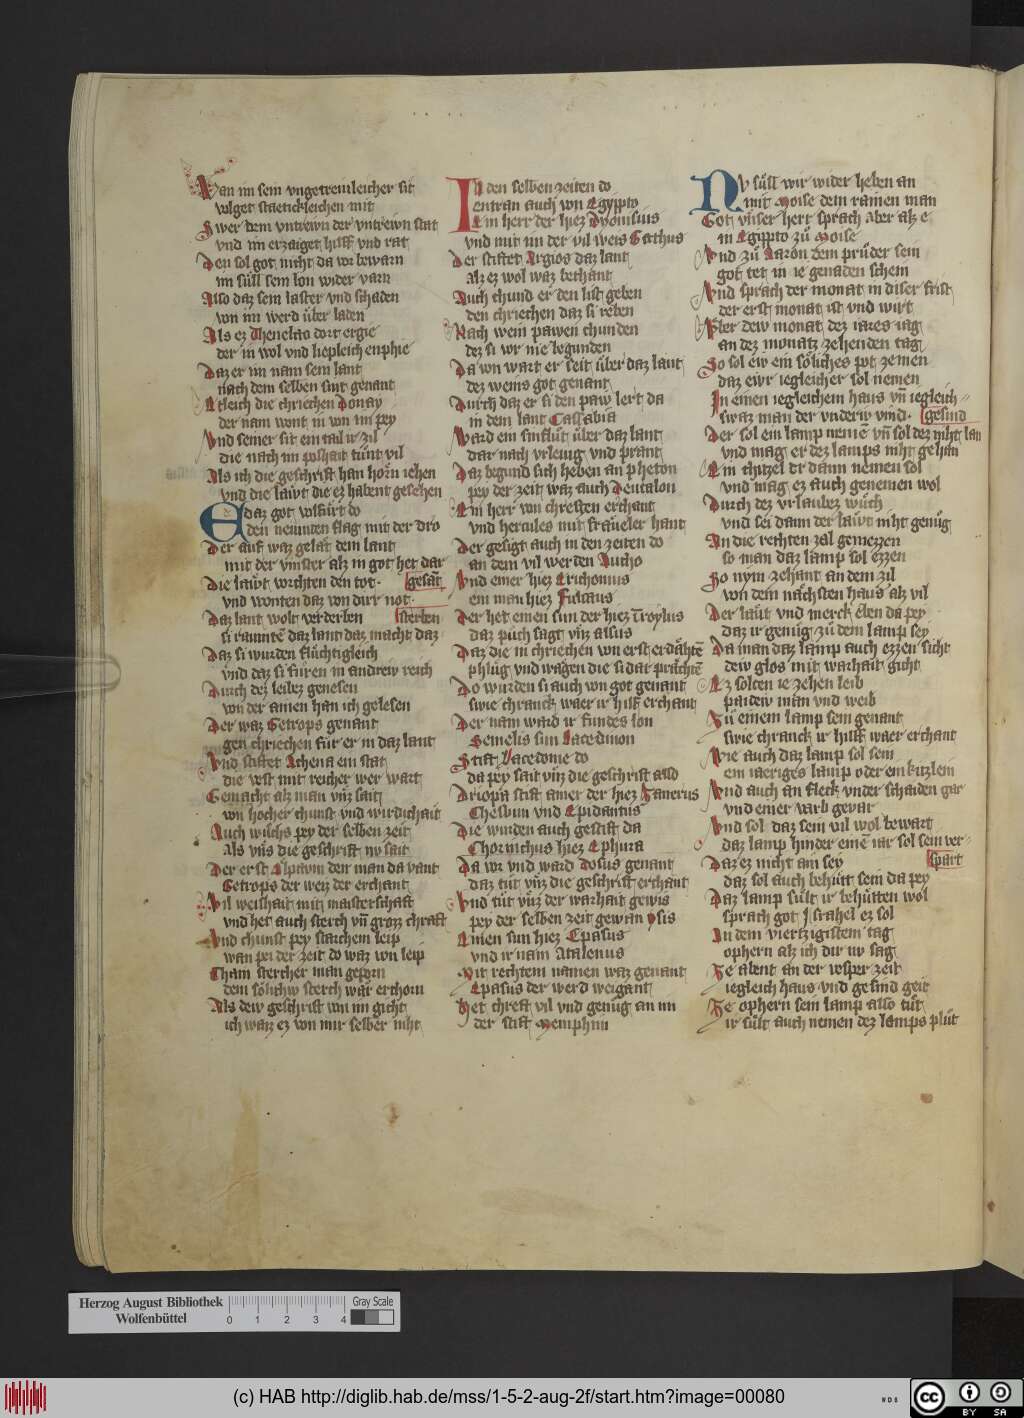 Wan im sein vngetrewleicher sit
volget staetichleichen mit
Swer dem vntrewn der vntrewn stat
vnd im erzaiget hilff vnd rat
Den sol got nicht da vor bewarn
im süll sein lon wider varn
Also daz sein laster vnd schaden
von im werd über laden
Als ez Thenelao dort ergie
der in wol vnd liepleich enphie
Daz er im nam sein lant
nach dem selben sint genant
Etleich die chriechen Donay
der nam wont in von im pey
Vnd seiner sit ein tail ir zil
die nach im poshait tůnt vil
Als ich die geschrift han horn iehen
vnd die läwt die ez habent gesehen
E daz got volfürt do
den neunten slag mit der dro
Der auf waz gelat dem lant
mit der vinster alz in got het dar
Die läwt vorchten den tot. gesāt
vnd wonten daz von dirr not.
Daz lant wolt verderben sterben
si raumtē daz lant daz macht daz
Daz si wurden flüchtigleich
vnd daz si füren in andrew reich
Durch dez leibez genesen
von der ainen han ich gelesen
Der waz Cetrops genant
gen chriechen für er in daz lant
Vnd stiftet Athena ein stat
die vest mit reicher wer wart
Gemacht alz man vnz sait
von hocher chunst vnd wirdichait
Auch wůchs pey der selben zeit
Als vns die geschrift nv sait
Der erst Ölpawm den man da vant
Cetrops der weiz der erchant
Vil weishait mit maisterschaft
vnd het auch sterch vn̄ grozz chraft
Vnd chunst pey starchem leip
wan pei der zeit do waz von leip
Cham stercher man geporn
dem sölichw sterch wär erchorn
Als dew geschrift von im gicht
ich waz ez von mir selber niht
In den selben zeiten do
entran auch von Egypto
Ein herr der hiez Dyonisius
vnd mit im der vil weis Bacchus
Der stiftet Argios daz lant
alz ez wol waz bechant
Auch chund er den list geben
den chriechen daz si reben
Nach wein pawen chunden
dez si vor nie begunden
Da von wart er seit über daz lant
dez weins got genant
Durch daz er si den paw lert da
in dem lant Cassabia
Ward ein sinflůt über daz lant
dar nach vrleug vnd prant
Daz begund sich heben an pheton
pey der zeit waz auch Deucalon
Ein herr von chresten erchant
vnd hercules mit fräueler hant
Der gesigt auch in den zeiten do
an dem vil werden Autho
Vnd einer hiez Erichonius
ein man hiez Fulcaus
Der het einen sun der hiez Troylus
daz půch sagt vnz alsus
Daz die in chriechen von erst erdähtē
phlůg vnd wagen die si dar prächtē
Do wurden si auch von got genant
swie chranck waer ir hilf erchant
Der nam ward ir fundes lon
Semelis sun Lacedmon
Stift Lacedonie do
da pey sait vnz die geschrift also
Driopa stift ainer der hiez Janerus
Chesbun vnd Epidantus
Die wurden auch gestift da
Chornichus hiez Ephura
Da vor vnd ward Dosus genant
daz tůt vnz die geschrift erchant
Vnd tůt vnz der warhait gewis
pey der selben zeit gewan ysis
Einen sun hiez Epafus
vnd ir nam Atalenus
Mit rechtem namen waz genant
Epafus der werd weigant
Het chreft vil vnd genůg an im
der stift Memphim
Nv süll wir wider heben an
mit Moise dem rainen man
Got vnser herr sprach aber alz e
in Egippto zů Moise
Vnd zů Aaron dem průder sein
got tet in ie genaden schein
Vnd sprach der monat in diser frist
der erst monat ist vnd wirt
Aber dew monat dez iares tag
an dez monatz zehenden tag
So sol ew ein söliches pot zemen
daz ewr iegleicher sol nemen
In einen iegleichem haus vn̄ iegleich
swaz man der vnderw vind. gesind
Der sol ein lamp nemē vn̄ sol dez niht lan
vnd mag er dez lamps niht gehan
Ein chitzel er dann nemen sol
vnd mag ez auch genemen wol
Durch dez vrlaubez wůch
vnd sei dann der läwt niht genůg
An die rechten zal geniezzen
so man daz lamp sol ezzen
So nym zehant an dem zil
von dem nächsten haus alz vil
Der läut vnd merck eben da pey
daz ir genüg zů dem lamp sey
Da man daz lamp auch ezzen siht
dew glos mit warhait gicht
Ez solten ie zehen leib
paidew man vnd weib
Zů einem lamp sein genant
swie chranck ir hilff waer erchant
Wie auch daz lamp sol sein
ein iaeriges lamp oder ein kitzlein
Vnd auch an fleck vnder schaiden gar
vnd einer varb gevar
Vnd sol daz sein vil wol bewart
daz lamp hinder einē iar sol sein ver-
Dar ez nicht ain sey spart
daz sol auch behüt sein da pey
Daz lamp sült ir behütten wol
sprach got Israhel ez sol
In dem viertzigistem tag
ophern alz ich dir nv sag
Ze abent an der vesper zeit
iegleich haus vnd gesind geit
Ze ophern sein lamp also tůt
ir sült auch nemen dez lamps plůt
Herzog August Bibliothek
Wolfenbüttel
0 1 2 3 4
Gray Scale
(c) HAB http://diglib.hab.de/mss/1-5-2-aug-2f/start.htm?image=00080
WDB
CC BY SA